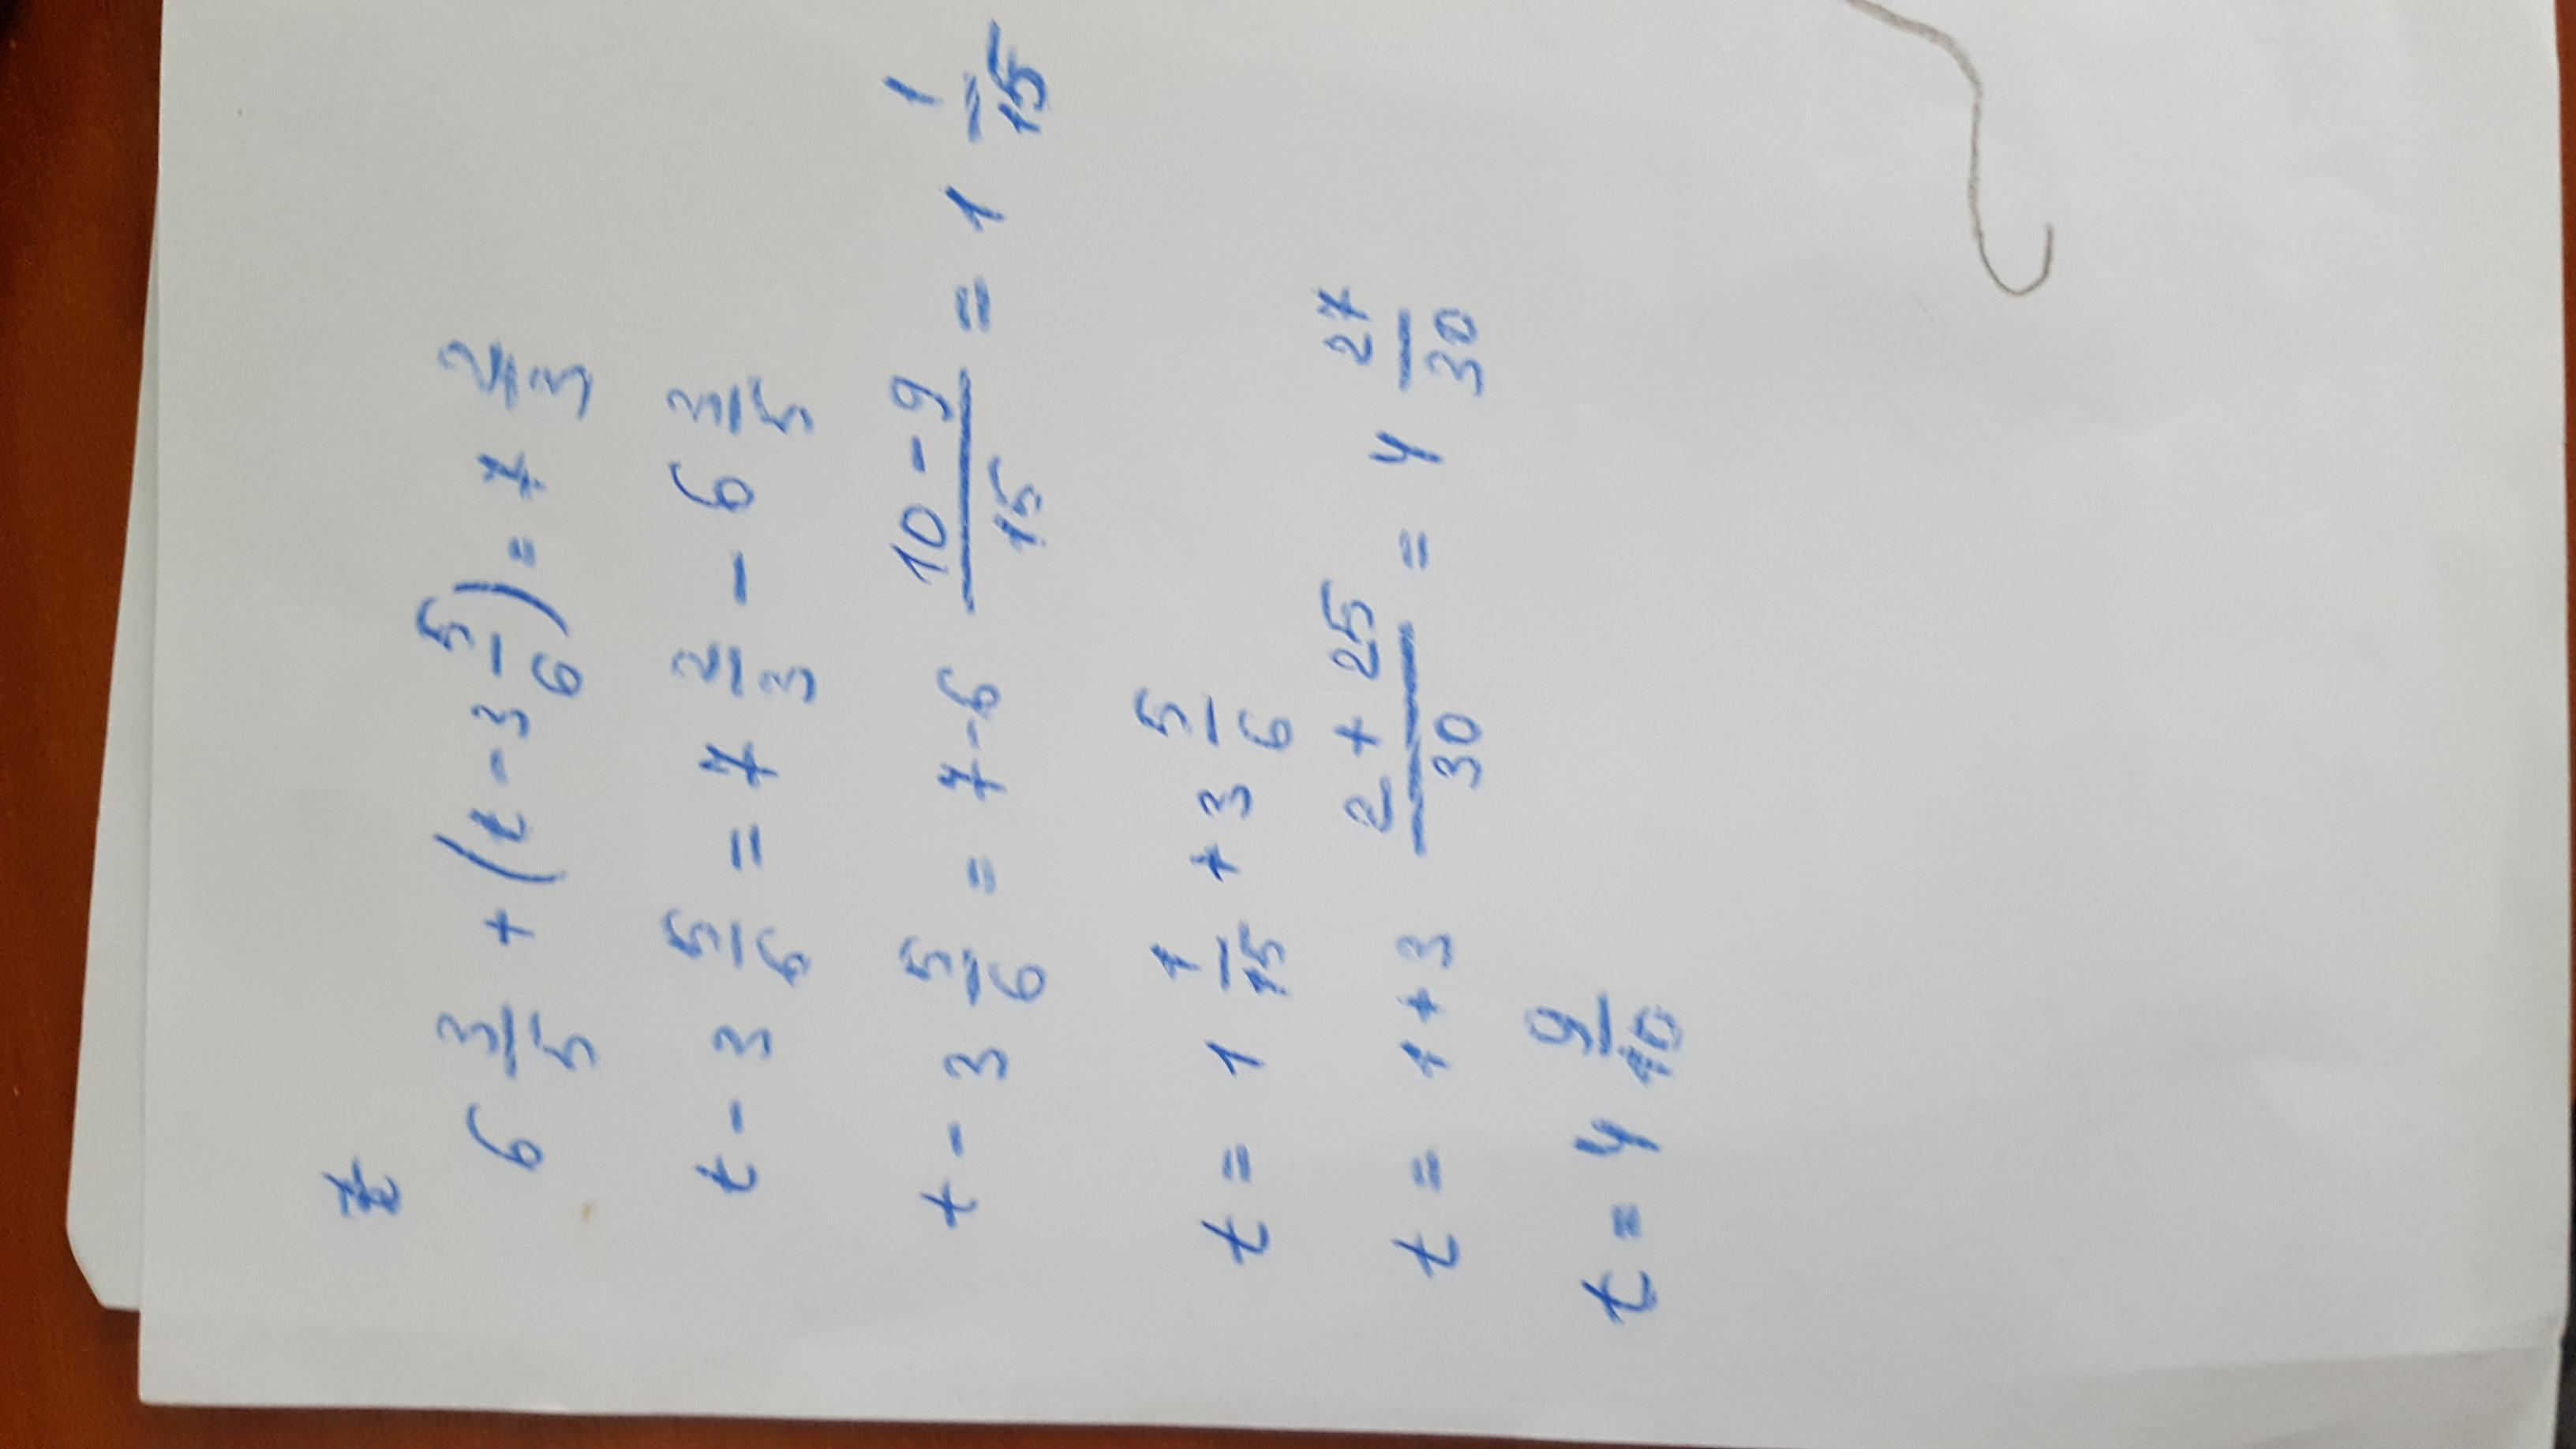 6 3/5 + (t - 3 5/6) = 7 2/3
t - 3 5/6 = 7 2/3 - 6 3/5
t - 3 5/6 = 7 - 6 10 - 9/15 = 1 1/15
t = 1 1/15 + 3 5/6
t = 1 + 3 2 + 25/30 = 4 27/30
t = 4 9/10